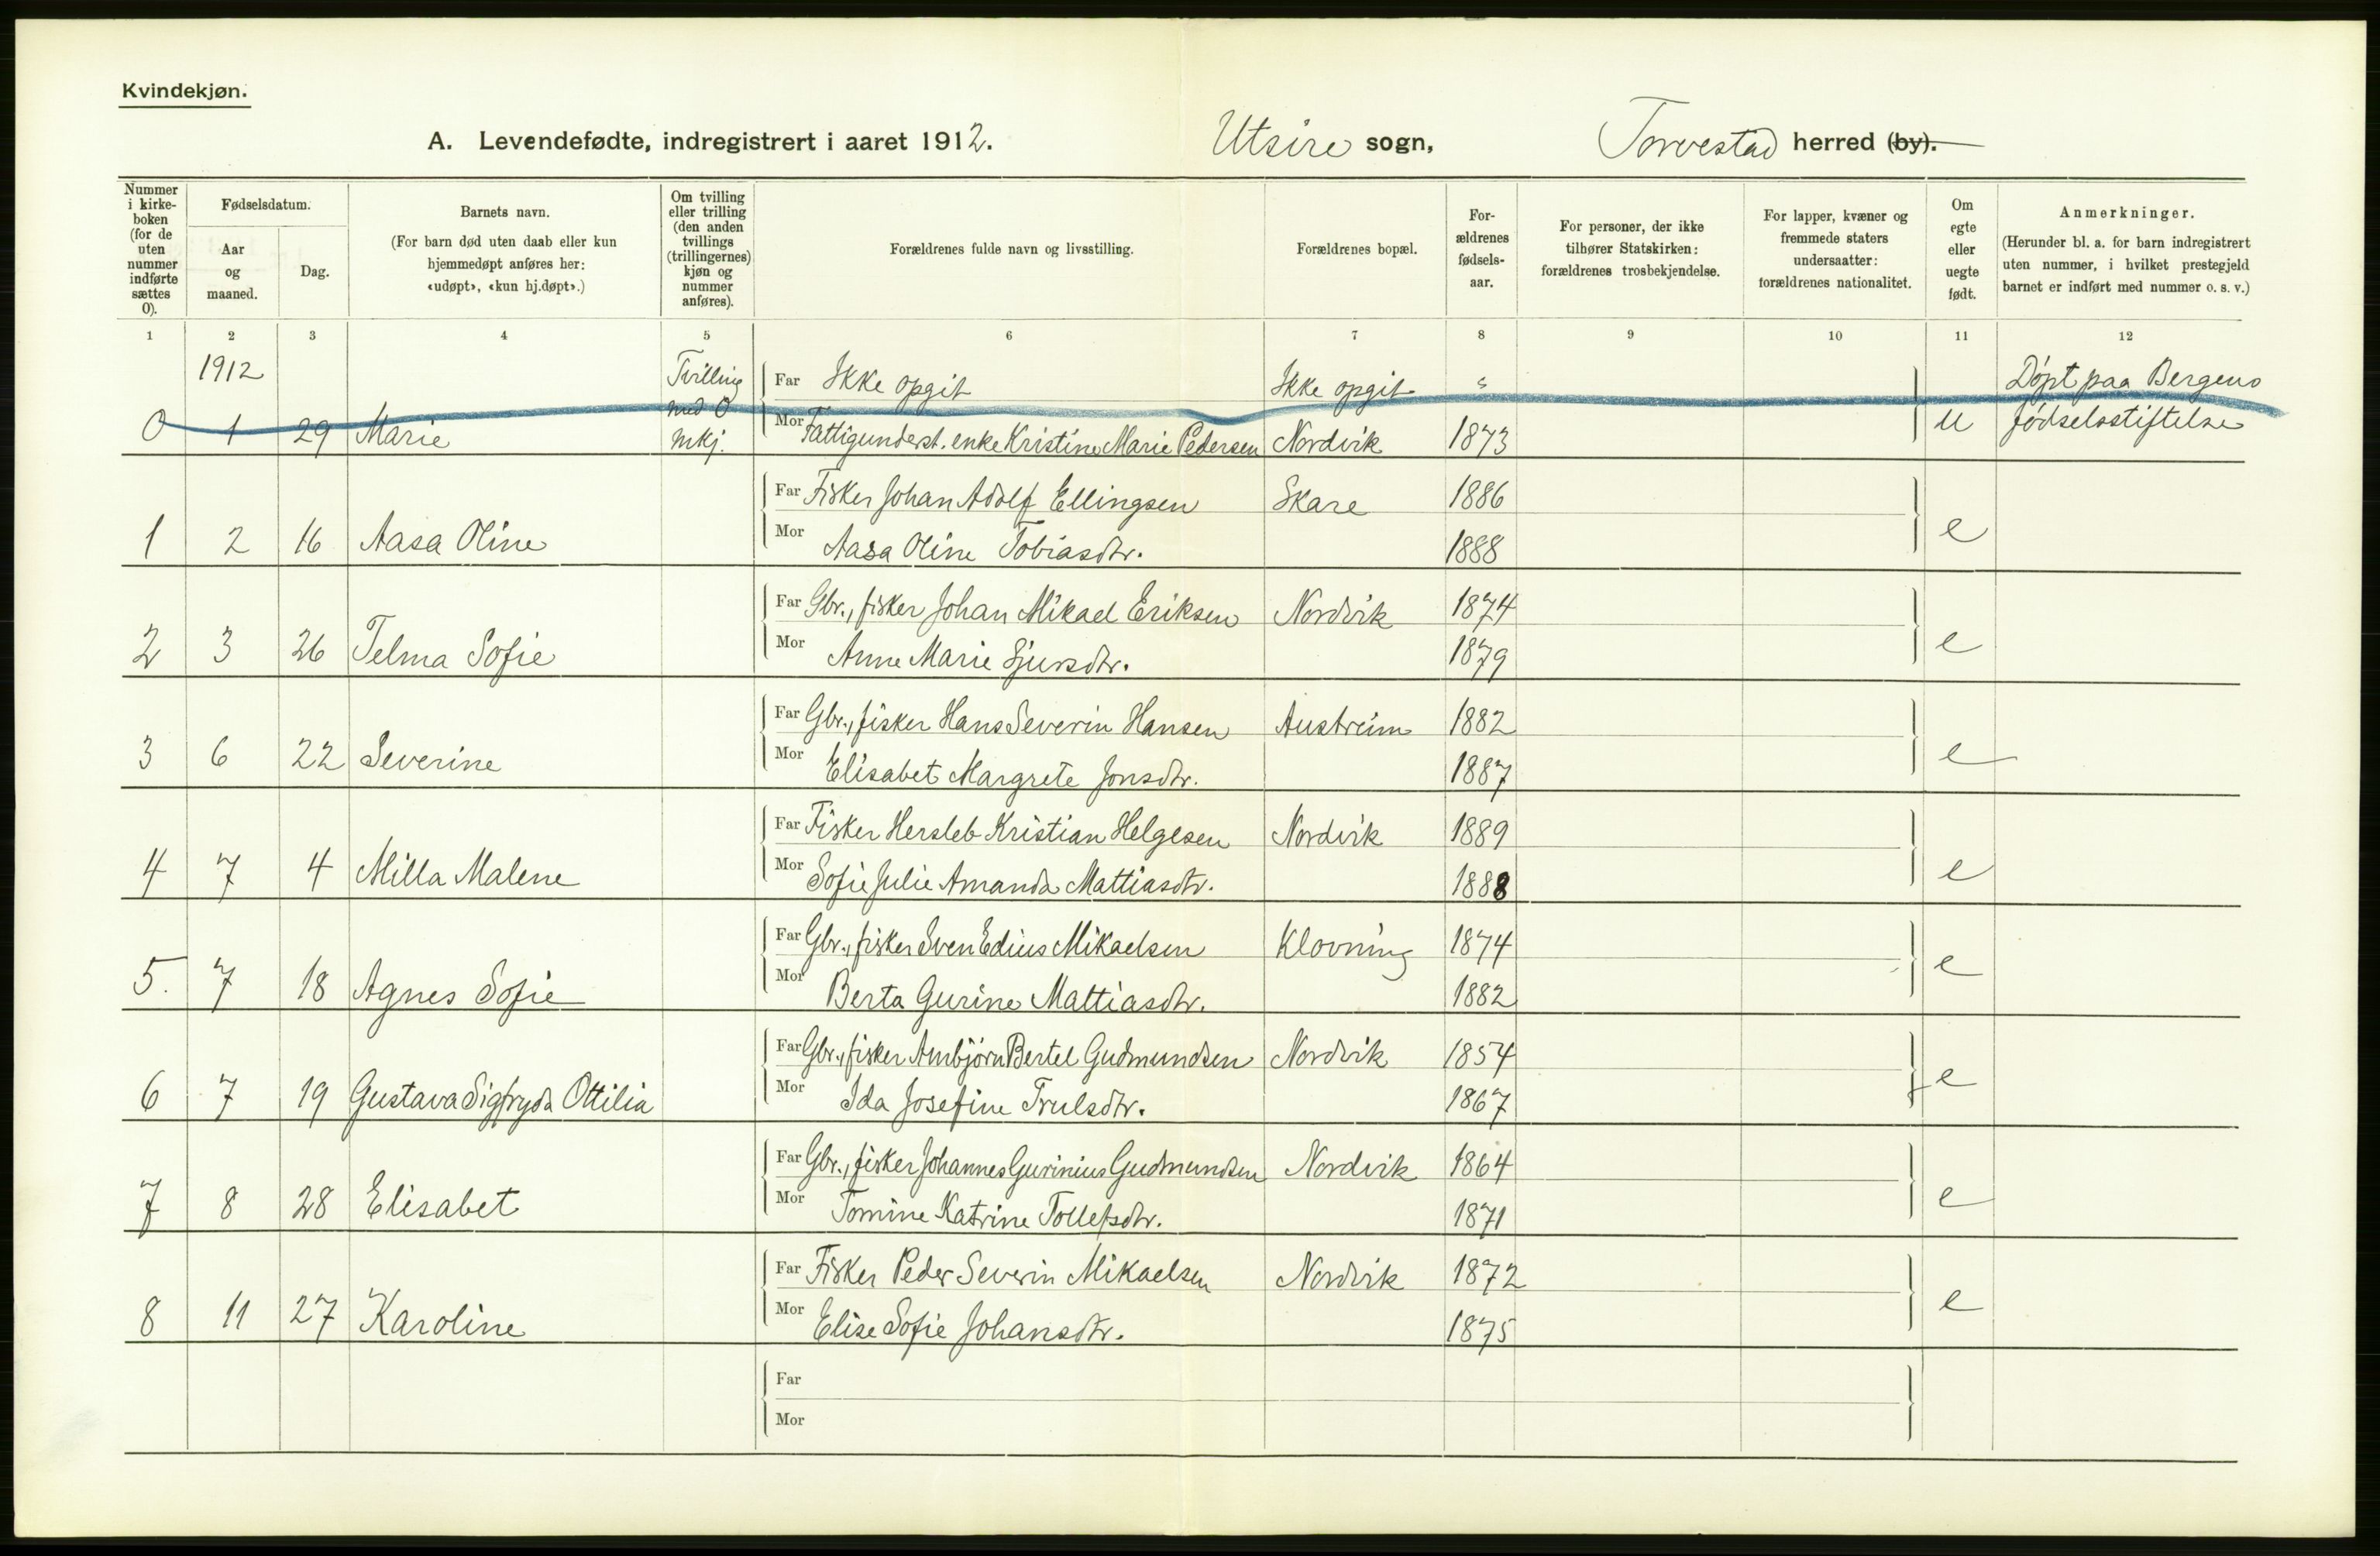 Kvindekjøn.
A. Levendefødte, indregistrert i aaret 1912. Utsire sogn, Torvestad herred (by).
Nummer i kirkeboken (for de uten nummer indførte sættes 0).
Fødselsdatum.
Aar og maaned.
Dag.
Barnets navn.
(For barn død uten daab eller kun hjemmedøpt anføres her: «udøpt», «kun hj.døpt».)
Om tvilling eller trilling (den anden tvillings (trillingernes) kjøn og nummer anføres).
Forældrenes fulde navn og livsstilling.
Forældrenes bopæl.
For-
ældrenes
fødsels-
aar.
For personer, der ikke
tilhører Statskirken:
forældrenes trosbekjendelse.
For lapper, kvæner og
fremmede staters
undersaatter:
forældrenes nationalitet.
Om
egte
eller
uegte
født.
Anmerkninger.
(Herunder bl. a. for barn indregistrert
uten nummer, i hvilket prestegjeld
barnet er indført med nummer o. s. v.)
1 2 3 4 5 6 7 8 9 10 11 12
1912 Tvilling Far Ikke opgit Ikke opgit Døpt paa Bergens
med 0
0 1 29 Marie mkj. Mor Fattigunderst. enke Kristine Marie Pedersen Nordvik 1873 u fødselsstiftelse
Far Fisker Johan Adolf Ellingsen Skare 1886
1 2 16 Aasa Oline Mor Aasa Oline Tobiasdtr. 1888 e
Far Gbr., fisker Johan Mikael Eriksen Nordvik 1874
2 3 26 Telma Sofie Mor Anne Marie Sjursdtr. 1879 e
Far Gbr., fisker Hans Severin Hansen Austreim 1882
3 6 22 Severine Mor Elisabet Margrete Jonsdtr. 1887 e
Far Fisker Hersleb Kristian Helgesen Nordvik 1889
4 7 4 Milla Malene Mor Sofie Julie Amanda Mattiasdtr. 1888 e
Far Gbr., fisker Sven Edius Mikaelsen Klovning 1874
5. 7 18 Agnes Sofie Mor Berta Gurine Mattiasdtr. 1882 e
Far Gbr., fisker Ambjørn Bertel Gudmundsen Nordvik 1854
6 7 19 Gustava Sigfryda Ottilia Mor Ida Josefine Trulsdtr. 1867 e
Far Gbr., fisker Johannes Gurinius Gudmundsen Nordvik 1864
7 8 28 Elisabet Mor Tomine Katrine Tollefsdtr. 1871 e
Far Fisker Peder Severin Mikaelsen Nordvik 1872
8 11 27 Karoline Mor Elise Sofie Johansdtr. 1875 e
Far
Mor